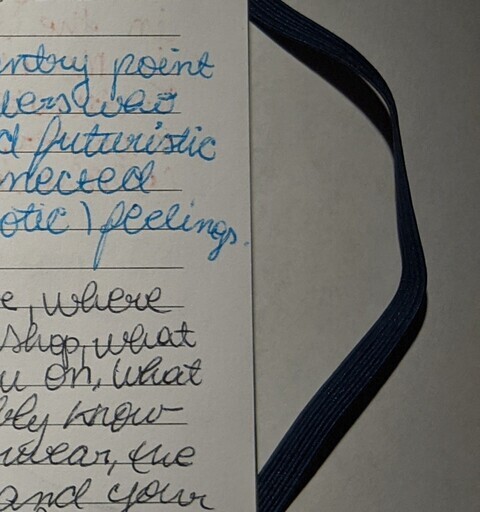 ntry point
futuristic
nected
otic) feelings.
e, where
shop, what
u on, what
bly know-
wear, the
and your